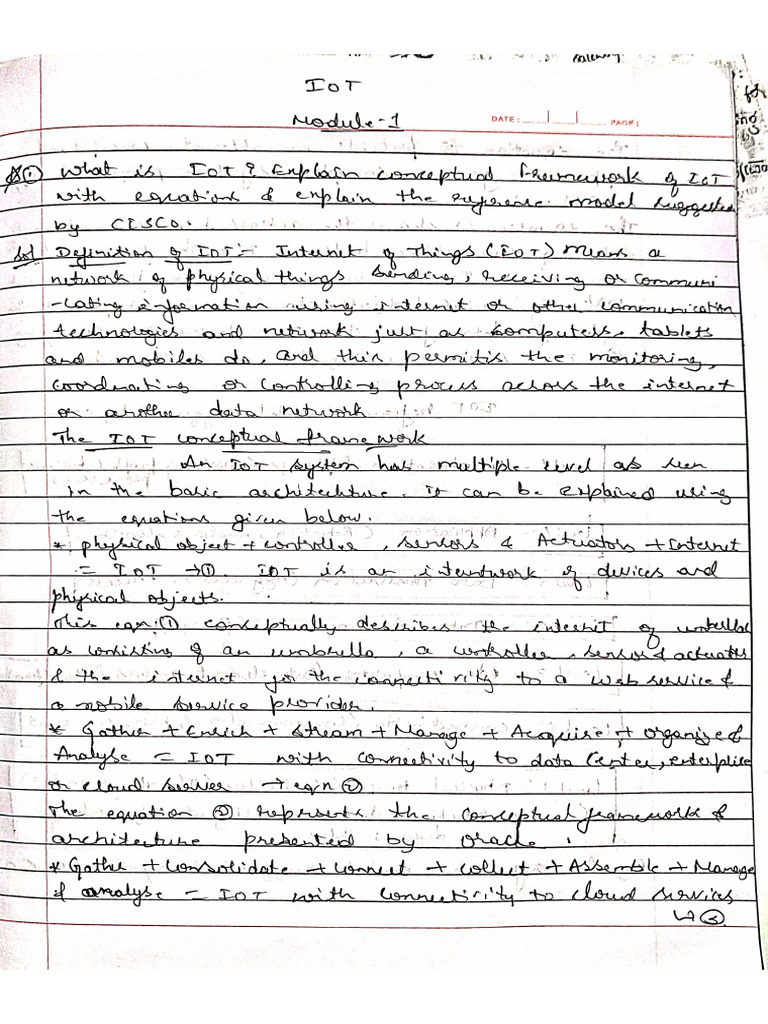 IOT
Module-1
DATE: PAGE:
Q① What is IOT & Explain conceptual framework of IOT
with equations & explain the reference model suggested
by CISCO.
Sol Definition of IOT:- Internet of Things (IOT) Means a
network of physical things sending, receiving or communi
-cating information using internet or other communication
technologies and network just as computers, tablets
and mobiles do, and this permitis the monitoring,
coordinating or controlling process across the internet
or another data network
The IOT conceptual frame work
An IOT system has multiple level as seen
in the basic architechture. it can be explained using
the equations given below.
* physical object + controller, sensors & Actuators + Internet
= IOT → ①. IOT is an internetwork of devices and
physical objects.
This eqn: ① conceptually describes the internet of umbrellas
as consisting of an umbrella, a controller, sensor & actuators
& the internet for the connectivity to a web service &
a mobile service provider.
* Gather + Enrich + Stream + Manage + Acquire + organize &
Analyse = IOT with connectivity to data center, enterprise
or cloud server → eqn ②
The equation ② represents the conceptual framework &
architecture presented by oracle.
* Gather + consolidate + connect + collect + Assemble + Manage
& analyse = IOT with connectivity to cloud services
↳ ③.